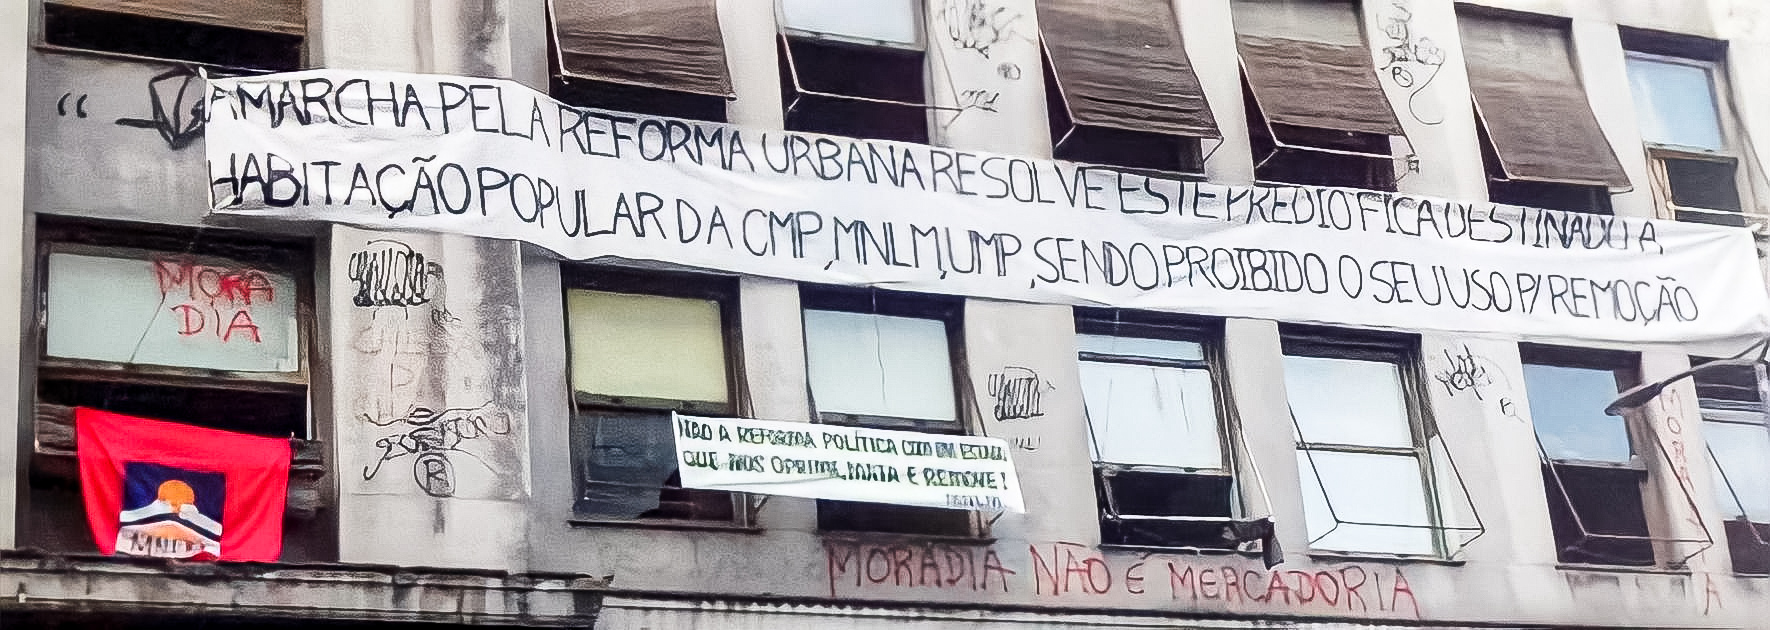 A MARCHA PELA REFORMA URBANA RESOLVE ESTE PRÉDIO FICA DESTINADO A,
HABITAÇÃO POPULAR DA CMP, MNLM, UMP, SENDO PROIBIDO O SEU USO P/ REMOÇÃO
MORA
DIA
NÃO A REFORMA POLÍTICA
QUE NOS OPRIME, MATA E REMOVE!
MNLM
MNLM
MORADIA NÃO É MERCADORIA